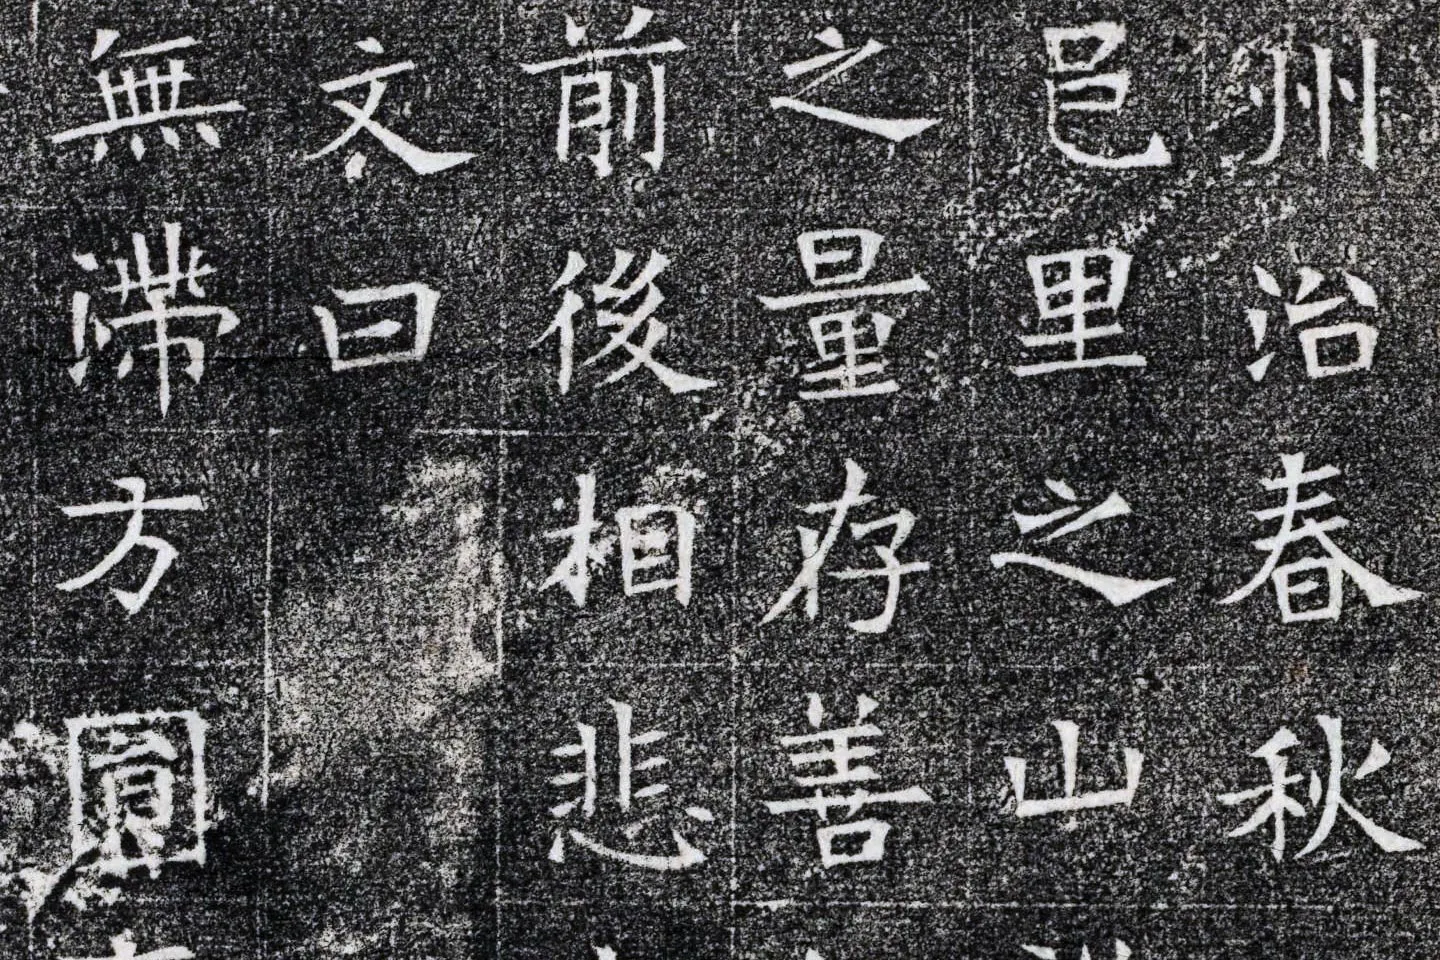 州治春秋
邑里之山
之量存善
前後相悲
文曰
無滯方圓